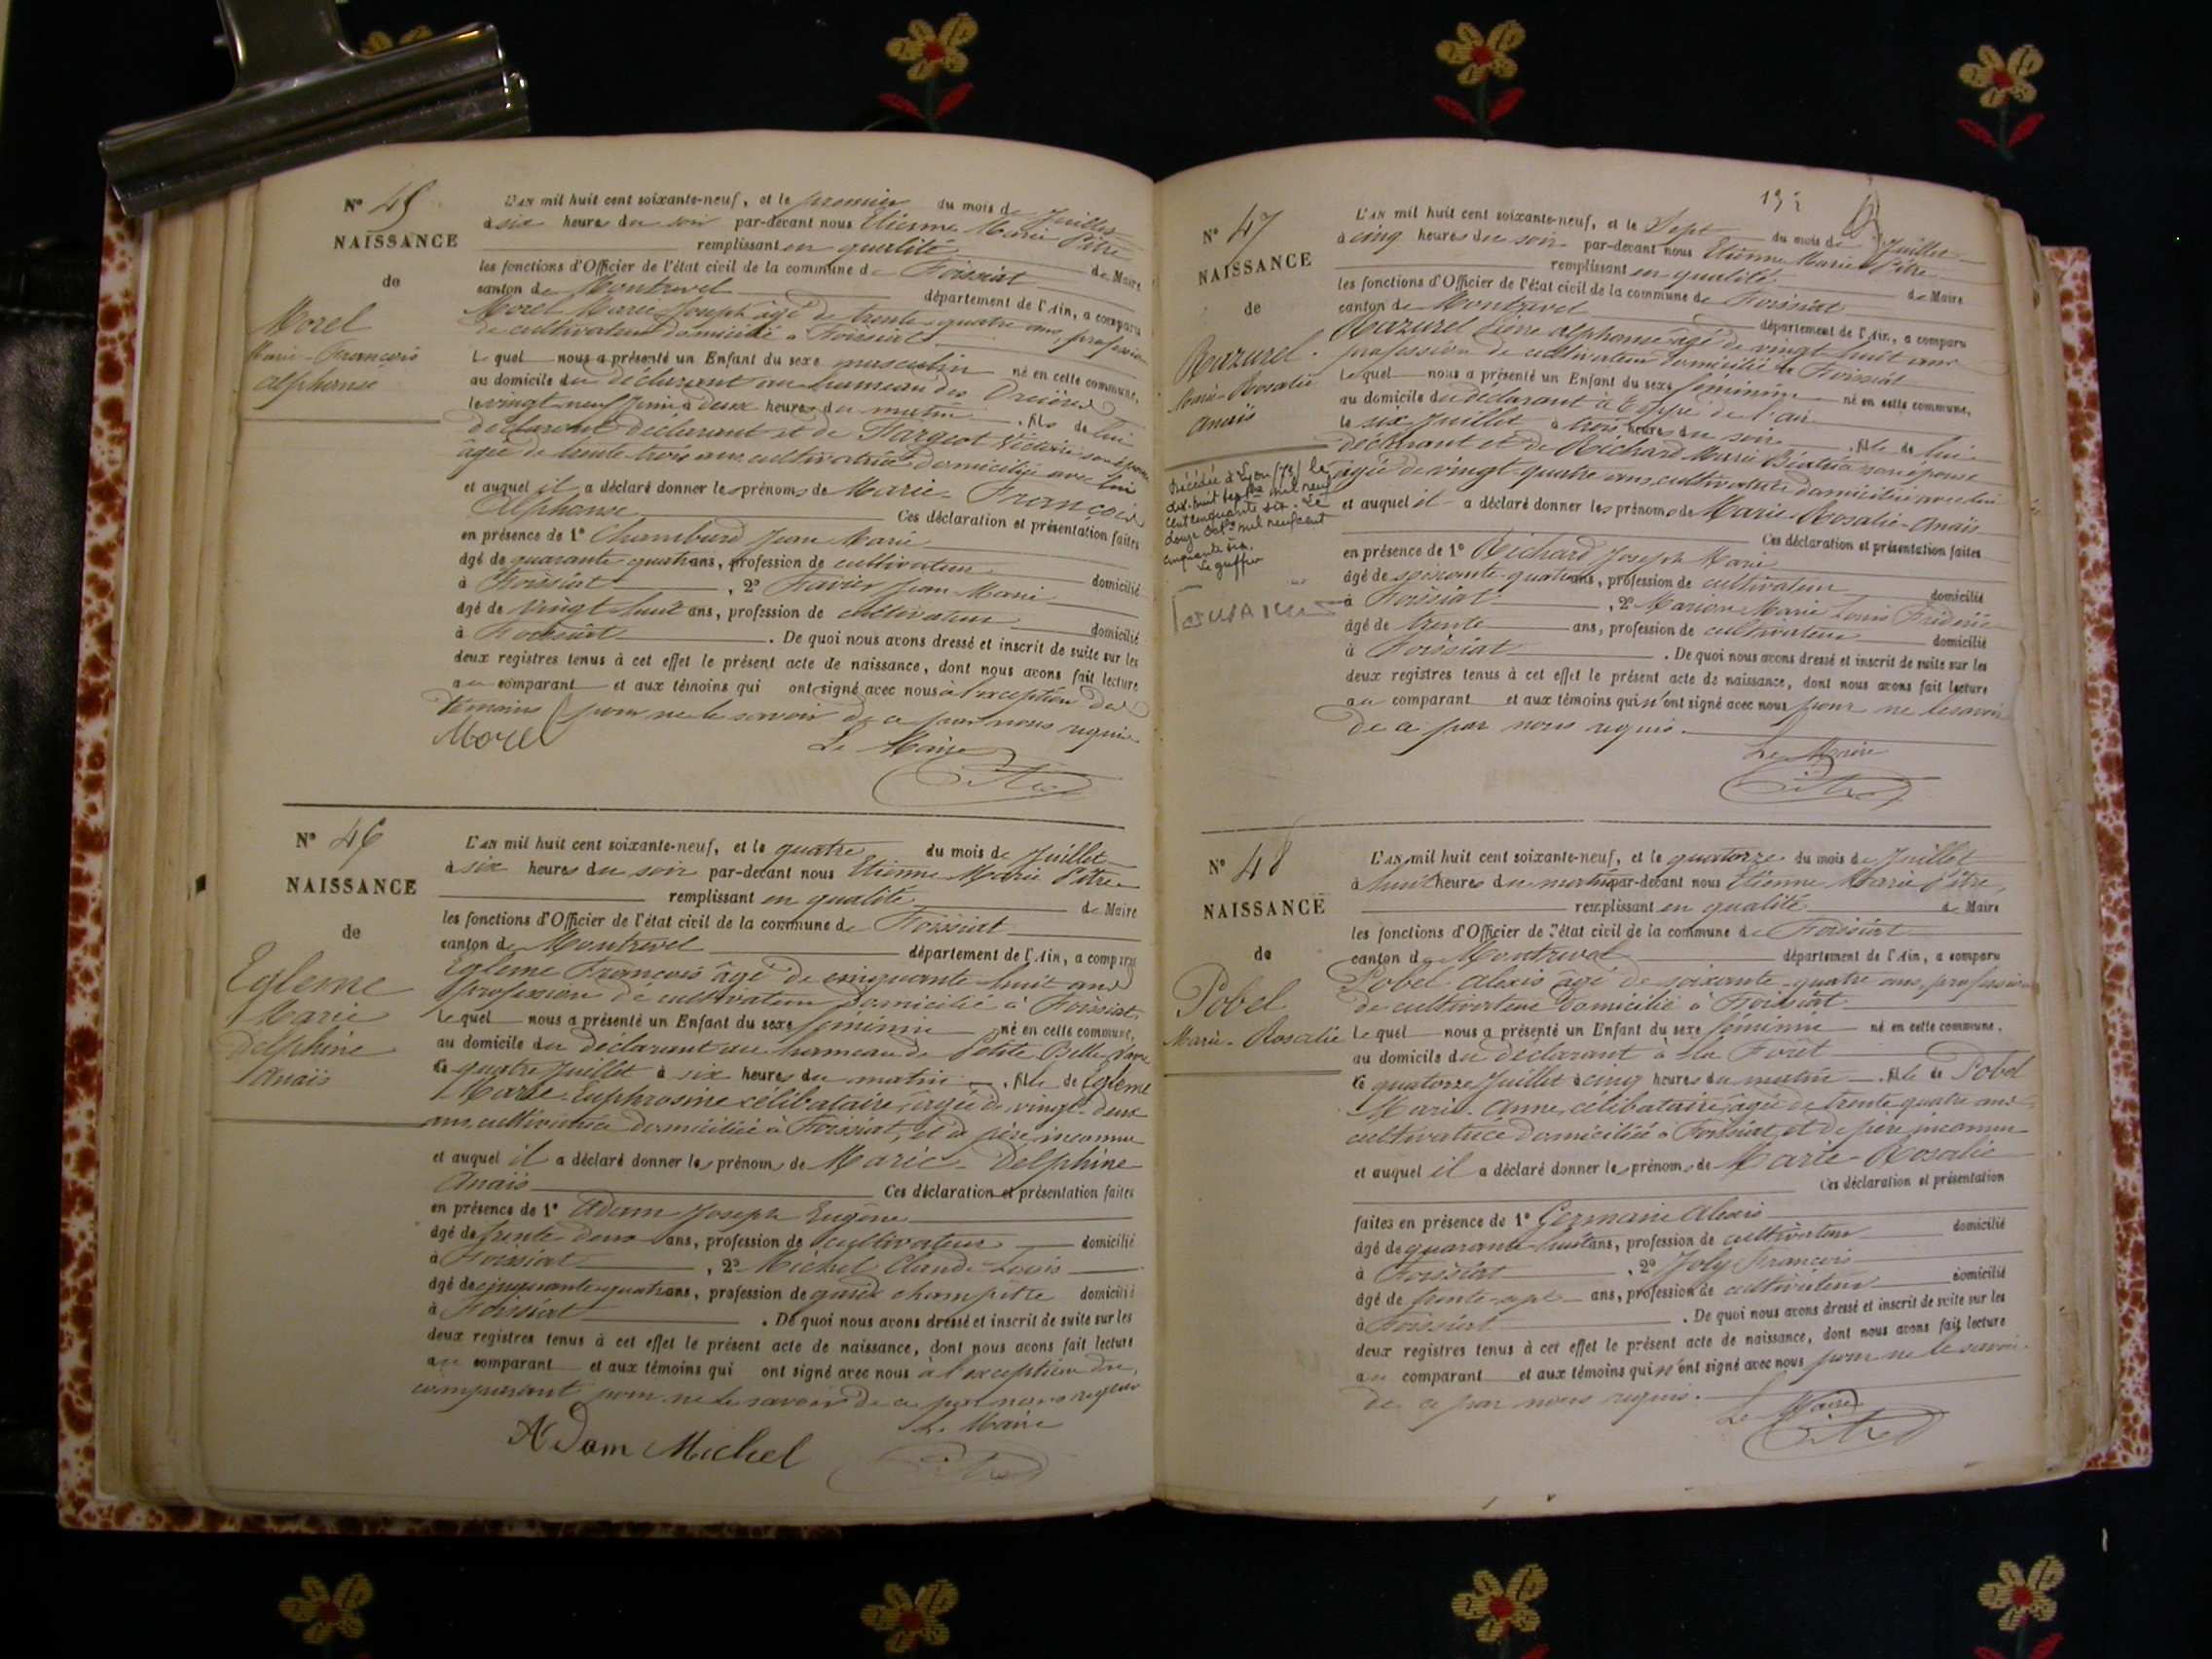 N° 45
NAISSANCE
de
Morel
Marie-François
Alphonse
L'AN mil huit cent soixante-neuf, et le premier du mois de Juillet
à six heures du soir par-devant nous Etienne Marie Pitre
remplissant en qualité de Maire
les fonctions d'Officier de l'état civil de la commune de Foissiat
canton de Montrevel département de l'Ain, a comparu
Morel Marie Joseph âgé de trente quatre ans, profession
de cultivateur domicilié à Foissiat
Lequel nous a présenté un Enfant du sexe masculin né en cette commune,
au domicile du déclarant au hameau des
le vingt neuf Juin à deux heures du matin, fils de lui
déclarant et de Fargeot Victoire son épouse
âgée de trente trois ans cultivatrice domiciliée avec lui
et auquel il a déclaré donner les prénoms de Marie-François
Alphonse Ces déclaration et présentation faites
en présence de 1° Chambard Jean Marie
âgé de quarante quatre ans, profession de cultivateur domicilié
à Foissiat, 2° Favier Jean Marie
âgé de vingt huit ans, profession de cultivateur domicilié
à Foissiat. De quoi nous avons dressé et inscrit de suite sur les
deux registres tenus à cet effet le présent acte de naissance, dont nous avons fait lecture
au comparant et aux témoins qui ont signé avec nous à l'exception des
témoins pour ne le savoir de ce par nous requis
Morel Le Maire
Pitre
N° 46
NAISSANCE
de
Egleme
Marie
Delphine
Anaïs
L'AN mil huit cent soixante-neuf, et le quatre du mois de Juillet
à six heures du soir par-devant nous Etienne Marie Pitre
remplissant en qualité de Maire
les fonctions d'Officier de l'état civil de la commune de Foissiat
canton de Montrevel département de l'Ain, a comparu
Egleme François âgé de cinquante huit ans
profession de cultivateur domicilié à Foissiat
Lequel nous a présenté un Enfant du sexe féminin né en cette commune,
au domicile du déclarant au hameau de Petite Belle
le quatre Juillet à six heures du matin, fille de Egleme
Marie Euphrosine célibataire, âgée de vingt-deux
ans, cultivatrice domiciliée à Foissiat, et de père inconnu
et auquel il a déclaré donner les prénoms de Marie-Delphine
Anaïs Ces déclaration et présentation faites
en présence de 1° Adam Joseph Eugène
âgé de trente deux ans, profession de cultivateur domicilié
à Foissiat, 2° Michel Claude Louis
âgé de cinquante quatre ans, profession de garde champêtre domicilié
à Foissiat. De quoi nous avons dressé et inscrit de suite sur les
deux registres tenus à cet effet le présent acte de naissance, dont nous avons fait lecture
au comparant et aux témoins qui ont signé avec nous à l'exception du
comparant pour ne le savoir de ce par nous requis
Le Maire
Adam Michel Pitre
N° 47
NAISSANCE
de
Razurel
Marie-Rosalie
Anaïs
Décédée à Lyon le
dix-huit septbre mil neuf
cent cinquante six. Le
douze octbre mil neuf cent
cinquante six.
Le greffier
L'AN mil huit cent soixante-neuf, et le Sept du mois de Juillet
à cinq heures du soir par-devant nous Etienne Marie Pitre
remplissant en qualité de Maire
les fonctions d'Officier de l'état civil de la commune de Foissiat
canton de Montrevel département de l'Ain, a comparu
Razurel Pierre Alphonse âgé de vingt huit ans
profession de cultivateur domicilié à Foissiat
Lequel nous a présenté un Enfant du sexe féminin né en cette commune,
au domicile du déclarant à
le six Juillet à trois heures du soir, fille de lui
déclarant et de Richard Marie Béatrix son épouse
âgée de vingt quatre ans, cultivatrice domiciliée avec lui
et auquel il a déclaré donner les prénoms de Marie-Rosalie-Anaïs
Ces déclaration et présentation faites
en présence de 1° Richard Joseph Marie
âgé de soixante quatre ans, profession de cultivateur domicilié
à Foissiat, 2° Marion Marie Louis Frédéric
âgé de trente ans, profession de cultivateur domicilié
à Foissiat. De quoi nous avons dressé et inscrit de suite sur les
deux registres tenus à cet effet le présent acte de naissance, dont nous avons fait lecture
au comparant et aux témoins qui n'ont signé avec nous pour ne le savoir
de ce par nous requis.
Le Maire
Pitre
N° 48
NAISSANCE
de
Pobel
Marie-Rosalie
L'AN mil huit cent soixante-neuf, et le quatorze du mois de Juillet
à huit heures du matin par-devant nous Etienne Marie Pitre,
remplissant en qualité de Maire
les fonctions d'Officier de l'état civil de la commune de Foissiat
canton de Montrevel département de l'Ain, a comparu
Pobel Alexis âgé de soixante-quatre ans, profession
de cultivateur domicilié à Foissiat
Lequel nous a présenté un Enfant du sexe féminin né en cette commune,
au domicile du déclarant à la Forêt
le quatorze Juillet à cinq heures du matin, fille de Pobel
Marie-Anne, célibataire, âgée de trente quatre ans
cultivatrice domiciliée à Foissiat, et de père inconnu
et auquel il a déclaré donner les prénoms de Marie-Rosalie
Ces déclaration et présentation
faites en présence de 1° Germain Alexis
âgé de quarante huit ans, profession de cultivateur domicilié
à Foissiat, 2° Joly François
âgé de trente sept ans, profession de cultivateur domicilié
à Foissiat. De quoi nous avons dressé et inscrit de suite sur les
deux registres tenus à cet effet le présent acte de naissance, dont nous avons fait lecture
au comparant et aux témoins qui n'ont signé avec nous pour ne le savoir
de ce par nous requis.
Le Maire
Pitre